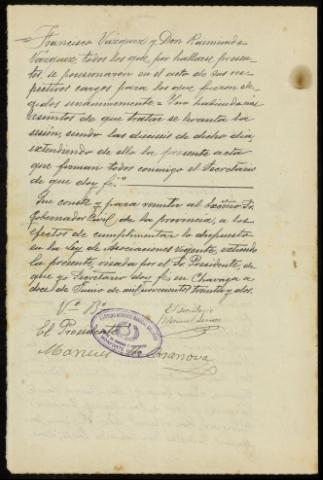 Francisco Vázquez y Don Raimundo
Vazquez, todos los que por hallarse presen-
tes, se posesionaron en el acto de sus res-
pectivos cargos para los que fueron ele-
gidos unánimemente = Y no habiendo mas
asuntos de que tratar se levanta la
sesión, siendo las dieciseis de dicho dia
extendiendo de ello la presente acta
que firman todos conmigo el Secretario
de que doy fé.
Que conste y para remitir al Excmo Sr.
Gobernador Civil de la provincia, a los
efectos de cumplimentar lo dispuesto
en la Ley de Asociaciones vigente, extiendo
la presente, visada por el Sr. Presidente, de
que yo Secretario doy fé en Chavaga a
doce de Junio de mil novecientos treinta y dos.
Vº Bº
El Secretario
El Presidente
Manuel Casanova